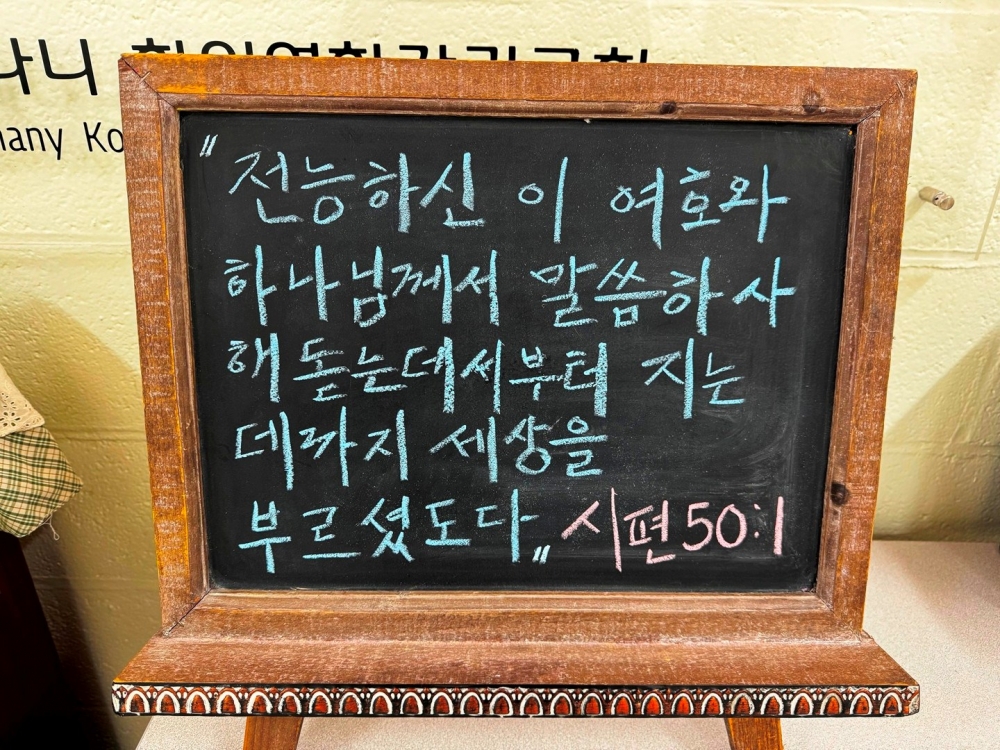 "전능하신 이 여호와
하나님께서 말씀하사
해 돋는데서부터 지는
데까지 세상을
부르셨도다„ 시편 50:1